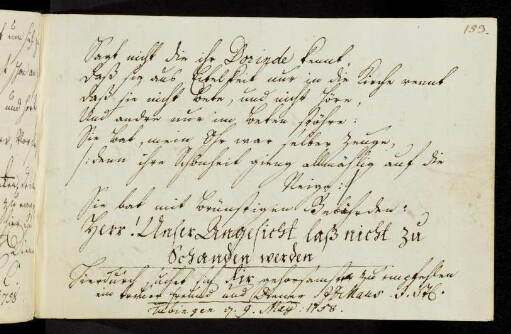 159.
Sagt nicht die ihr Dorinde kennt,
Daß sie aus Eitelkeit nur in die Kirche rennt
Daß sie nicht bete, und nicht höre,
Und andre nur im beten störe:
Sie bat, mein Ohr war selber Zeuge,
/:denn ihre Schönheit gieng allmählig auf die
Neige:/
Sie bat mit brünstigen Gebährden:
Herr! Unser Angesicht laß nicht zu
Schanden werden
Hierdurch suchet sich gehorsamst zu empfehlen
ein treuer Freund und Diener
Tübingen d. 9. May. 1758.